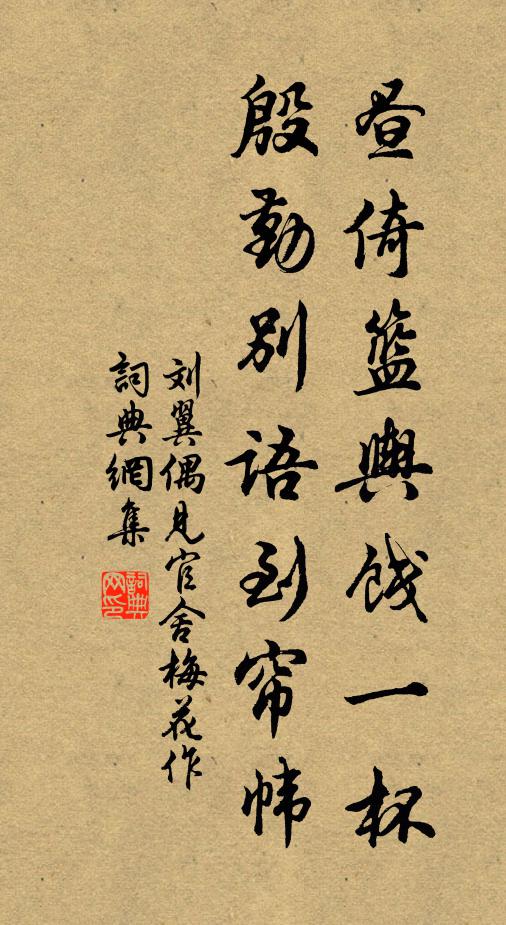 昼倚籃輿饯一杯
殷勤别語到帘帏
刘翼偶見官舍梅花作
詞典網集
詞典网印